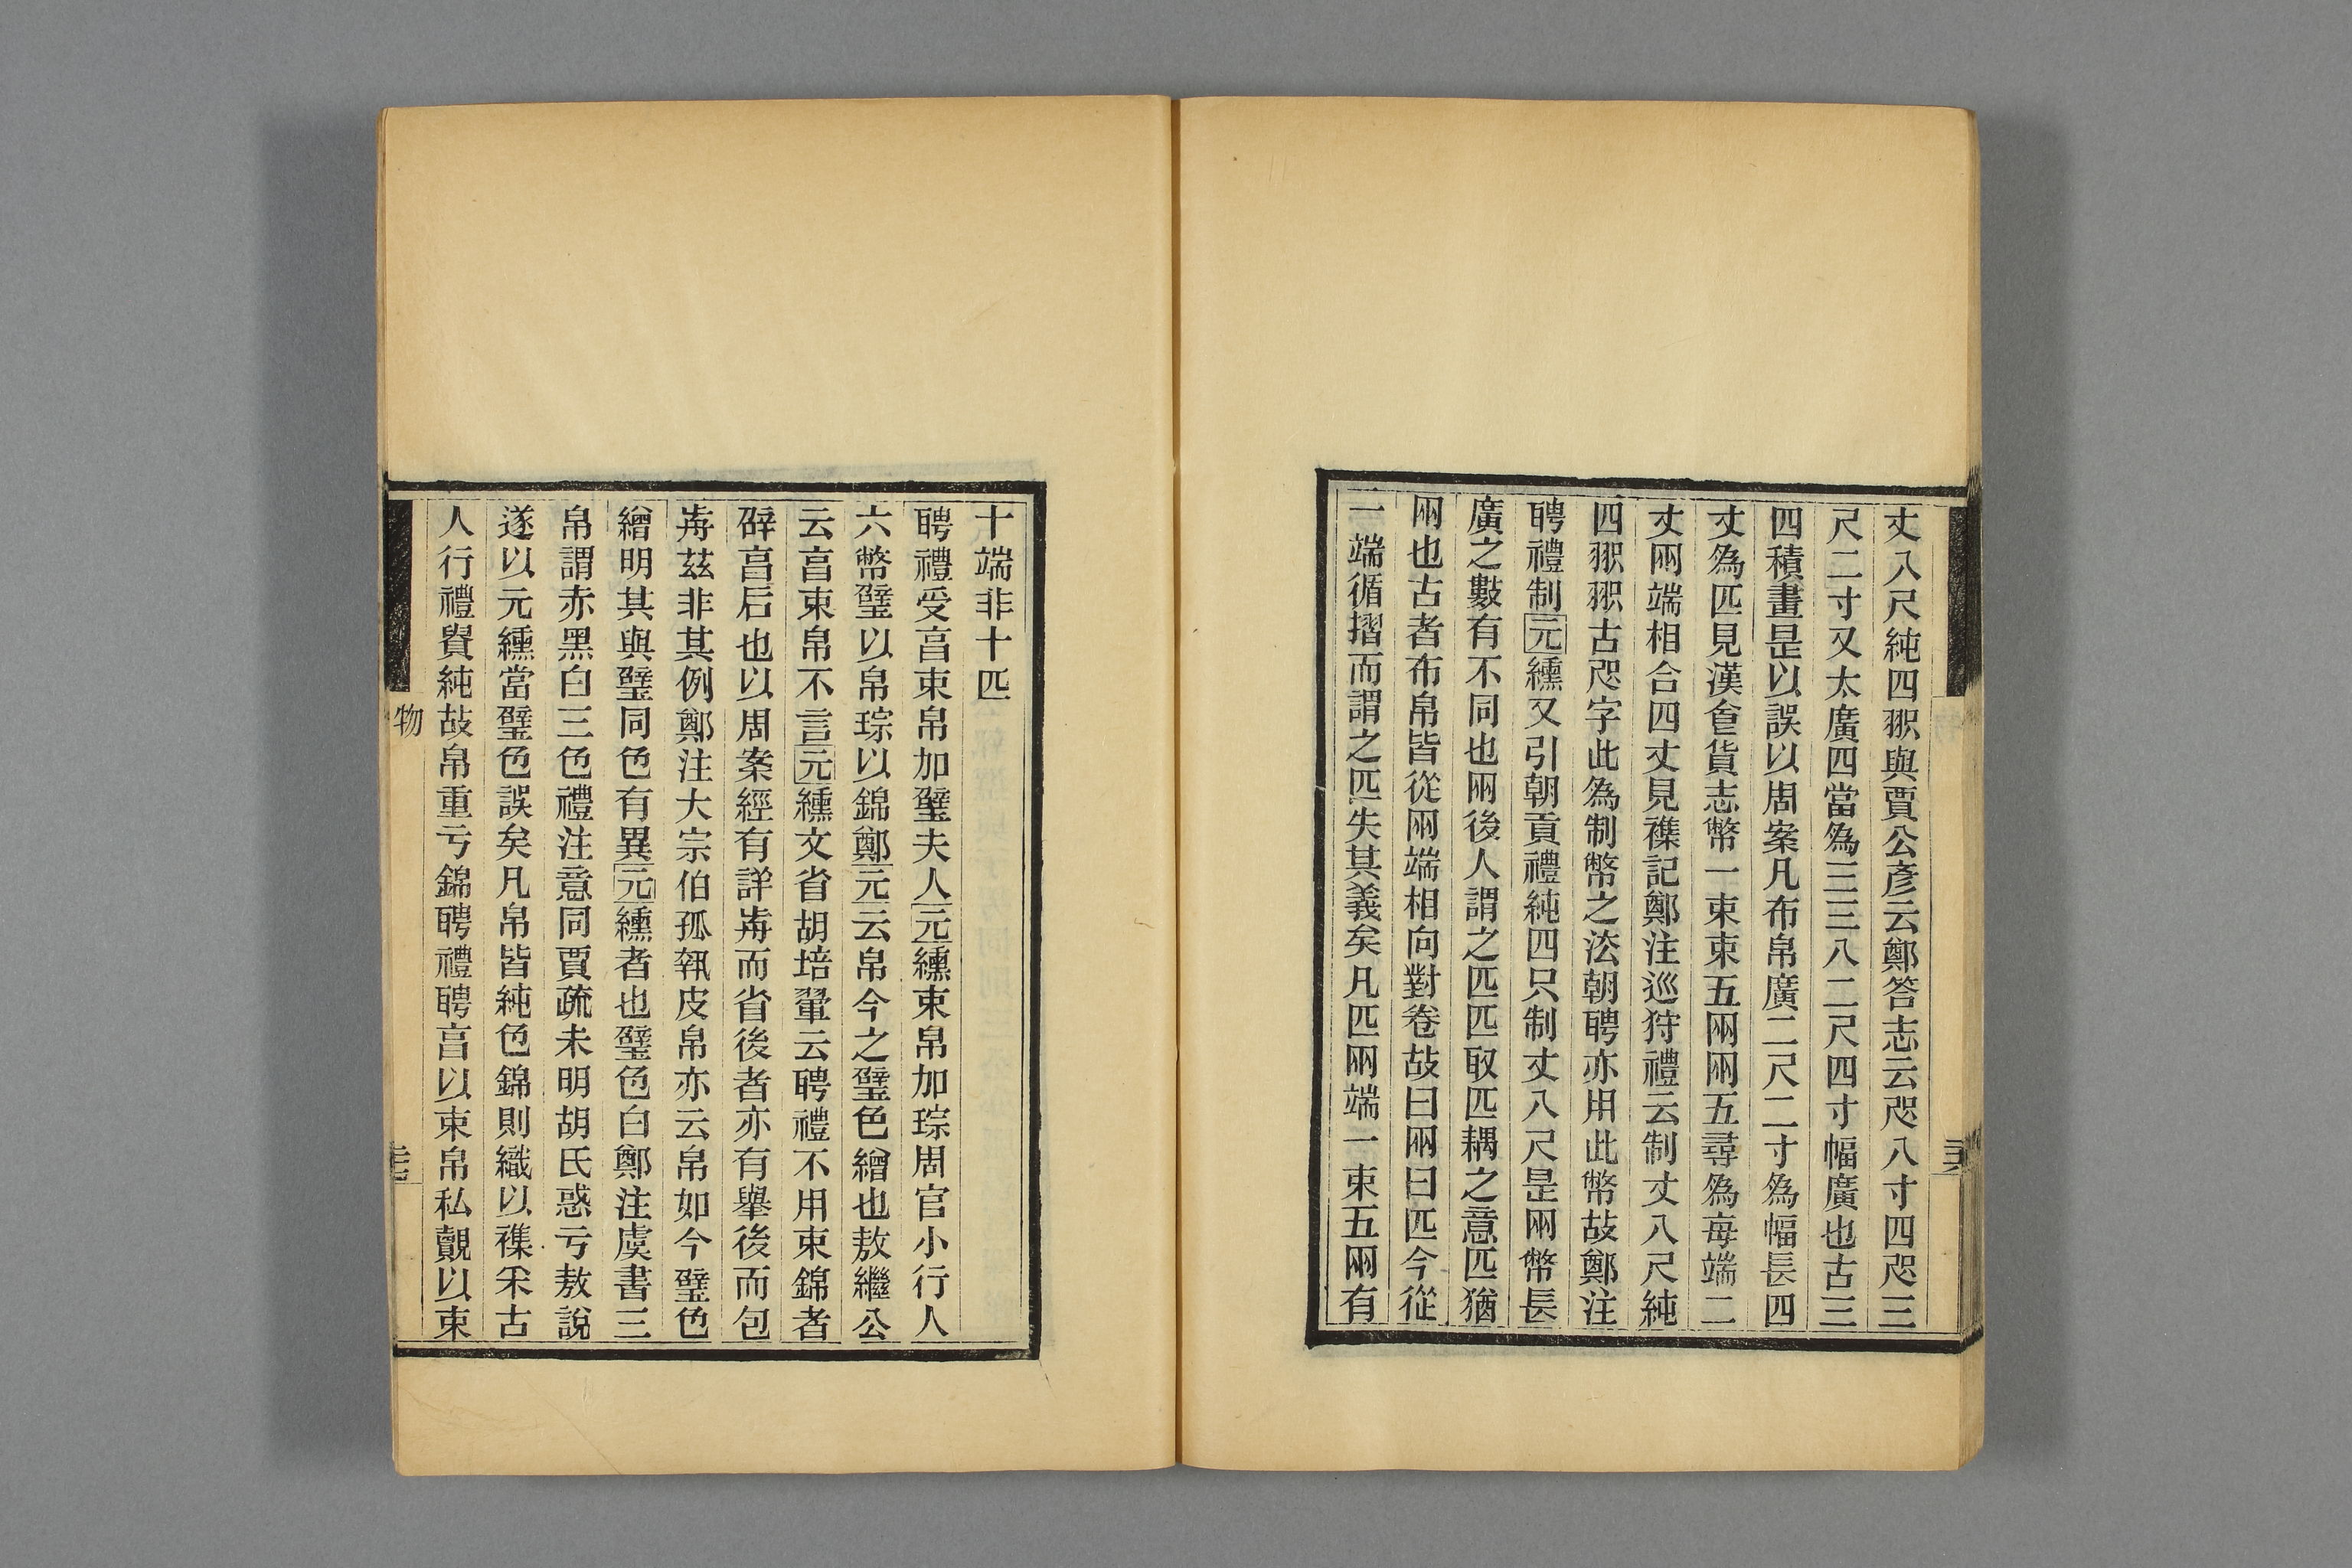 丈八尺純四䋲與賈公彥云鄭答志云咫八寸四咫三
尺二寸又太廣四當爲三三八二尺四寸幅廣也古三
四積畫是以誤以周案凡布帛廣二尺二寸爲幅長四
丈爲匹見漢食貨志幣一束束五兩兩五尋爲每端二
丈兩端相合四丈見襍記鄭注巡狩禮云制丈八尺純
四䋲䋲古咫字此爲制幣之法朝聘亦用此幣故鄭注
聘禮制元纁又引朝貢禮純四只制丈八尺是兩幣長
廣之數有不同也兩後人謂之匹匹取匹耦之意匹猶
兩也古者布帛皆從兩端相向對卷故曰兩曰匹今從
一端循摺而謂之匹失其義矣凡匹兩端一束五兩有
十端非十匹
聘禮受亯束帛加璧夫人元纁束帛加琮周官小行人
六幣璧以帛琮以錦鄭元云帛今之璧色繒也敖繼公
云亯束帛不言元纁文省胡培翬云聘禮不用束錦者
辟亯后也以周案經有詳歬而省後者亦有舉後而包
歬茲非其例鄭注大宗伯孤執皮帛亦云帛如今璧色
繒明其與璧同色有異元纁者也璧色白鄭注虞書三
帛謂赤黑白三色禮注意同賈疏未明胡氏惑亏敖說
遂以元纁當璧色誤矣凡帛皆純色錦則織以襍采古
人行禮貴純故帛重亏錦聘禮聘亯以束帛私覿以束
物